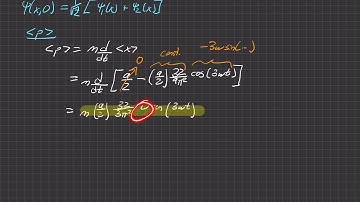 Ψ(x,0) = 1/√2 [ψ₁(x) + ψ₂(x)]
<p>
0 const. -3ω sin(~)
<p> = m d/dt <x>
= m d/dt [a/2 - (a/2) 32/9π² cos(3ωt)]
= m (a/2) 32/3π² ω sin(3ωt)